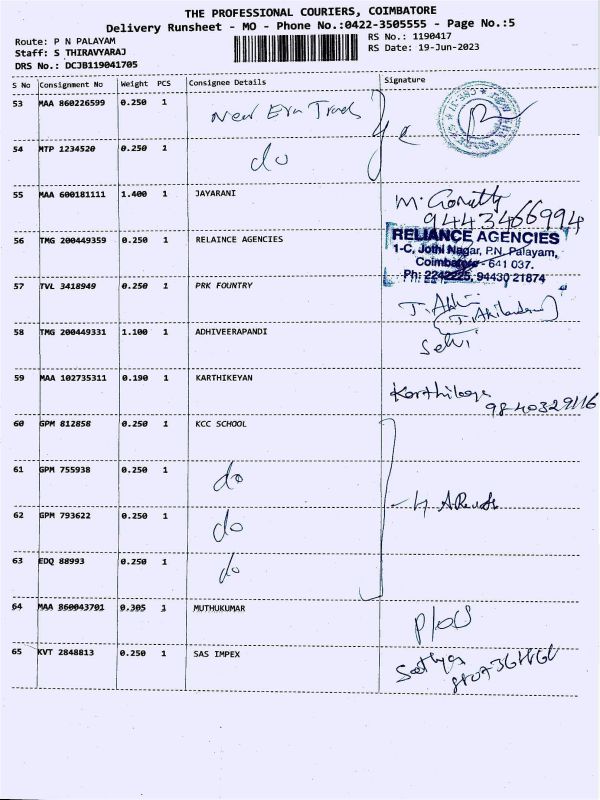 THE PROFESSIONAL COURIERS, COIMBATORE
Delivery Runsheet - MO - Phone No.:0422-3505555 - Page No.:5
Route: P N PALAYAM
Staff: S THIRAVYARAJ
DRS No.: DCJB119041705
RS No.: 1190417
RS Date: 19-Jun-2023
S No Consignment No Weight PCS Consignee Details Signature
53 MAA 860226599 0.250 1 New Era Trads
54 MTP 1234520 0.250 1 do
55 MAA 600181111 1.400 1 JAYARANI M.
9443466994
56 TMG 200449359 0.250 1 RELAINCE AGENCIES
RELIANCE AGENCIES
1-C, Jothi Nagar, P.N. Palayam,
Coimbatore - 641 037.
Ph: 2242225, 94430 21874
57 TVL 3418949 0.250 1 PRK FOUNTRY
58 TMG 200449331 1.100 1 ADHIVEERAPANDI Selvi
59 MAA 102735311 0.190 1 KARTHIKEYAN
9840329116
60 GPM 812858 0.250 1 KCC SCHOOL
61 GPM 755938 0.250 1 do
62 GPM 793622 0.250 1 do
63 EDQ 88993 0.250 1 do
64 MAA 860043701 0.305 1 MUTHUKUMAR
65 KVT 2848813 0.250 1 SAS IMPEX